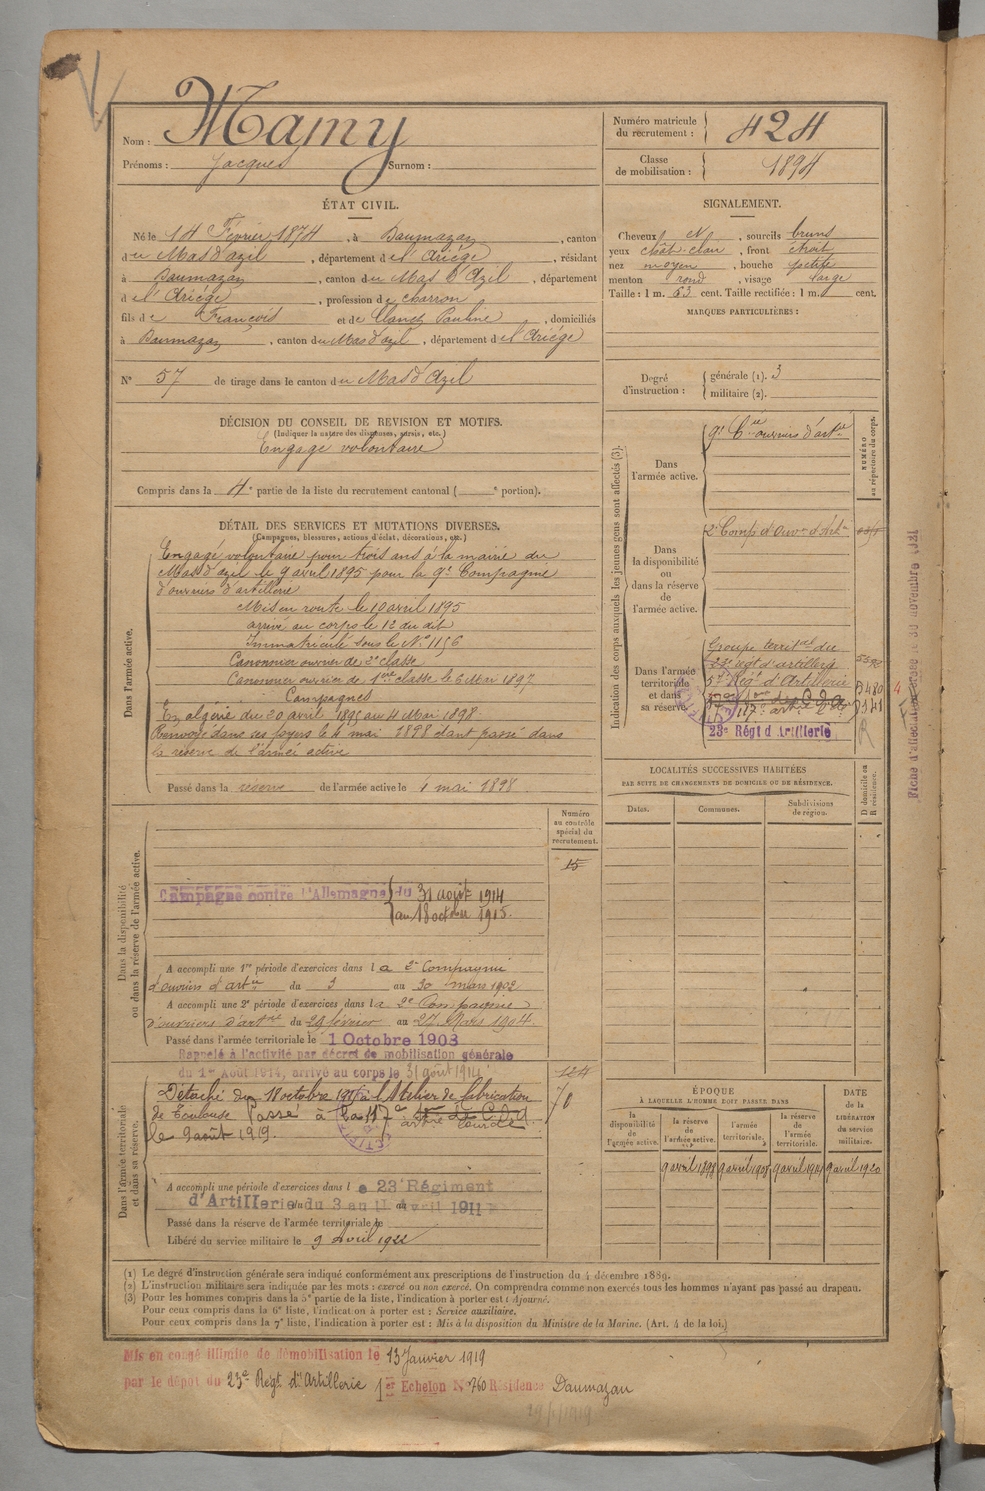 Nom : Mamy
Prénoms : Jacques Surnom :
Numéro matricule du recrutement : 424
Classe de mobilisation : 1894
ÉTAT CIVIL.
Né le 14 Février 1874, à Daumazan, canton
du Mas d'azil, département de l'Ariége, résidant
à Daumazan, canton du Mas d'Azil, département
de l'Ariége, profession de charron
fils de François et de Clanch Pauline, domiciliés
à Daumazan, canton du Mas d'azil, département de l'Ariége
N° 57 de tirage dans le canton du Mas d'Azil
SIGNALEMENT.
Cheveux N, sourcils bruns
yeux chât. clair, front étroit
nez moyen, bouche petite
menton rond, visage large
Taille : 1 m. 63 cent. Taille rectifiée : 1 m. cent.
MARQUES PARTICULIÈRES :
Degré d'instruction : générale (1). 3
militaire (2).
DÉCISION DU CONSEIL DE REVISION ET MOTIFS.
(Indiquer la nature des dispenses, sursis, etc.)
Engagé volontaire
Compris dans la 4e partie de la liste du recrutement cantonal ( e portion).
DÉTAIL DES SERVICES ET MUTATIONS DIVERSES.
(Campagnes, blessures, actions d'éclat, décorations, etc.)
Dans l'armée active.
Engagé volontaire pour trois ans à la mairie du
Mas d'azil le 9 avril 1895 pour la 9e Compagnie
d'ouvriers d'artillerie
Mis en route le 10 avril 1895
arrivé au corps le 12 du dit
Immatriculé sous le N° 1156
Canonnier ouvrier de 2e classe
Canonnier ouvrier de 1ere classe le 6 Mai 1897
Campagnes
En algérie du 20 avril 1895 au 4 Mai 1898
Renvoyé dans ses foyers le 4 mai 1898 étant passé dans
la réserve de l'armée active
Passé dans la réserve de l'armée active le 4 mai 1898
Indication des corps auxquels les jeunes gens sont affectés (3).
NUMÉRO au répertoire du corps.
Dans l'armée active.
9e Cie ouvriers d'artie
Dans la disponibilité ou dans la réserve de l'armée active.
2e Comp d'Ouv.rs d'Art.ie
Dans l'armée territoriale et dans sa réserve.
Groupe territal du
23e régt d'artillerie
5e Régt d'Artillerie
23e Régt d'Artillerie
LOCALITÉS SUCCESSIVES HABITÉES
PAR SUITE DE CHANGEMENTS DE DOMICILE OU DE RÉSIDENCE.
Dates. Communes. Subdivisions de région.
D domicile ou R résidence.
Numéro au contrôle spécial du recrutement.
15
Dans la disponibilité ou dans la réserve de l'armée active.
Campagne contre l'Allemagne du 31 août 1914
au 18 octobre 1915.
A accompli une 1re période d'exercices dans la 2e Compagnie
d'ouvriers d'artie du 3 au 30 mars 1902
A accompli une 2e période d'exercices dans la 2e Compagnie
d'ouvriers d'artie du 29 février au 27 Mars 1904.
Passé dans l'armée territoriale le 1 Octobre 1908
Rappelé à l'activité par décret de mobilisation générale
du 1er Août 1914, arrivé au corps le 31 août 1914
124
Dans l'armée territoriale et dans sa réserve.
Détaché du 18 octobre 1915 à l'Atelier de fabrication
de Toulouse Passé à
le 9 août 1919.
A accompli une période d'exercices dans le 23e Régiment
d'Artillerie du 3 au 11 avril 1911
Passé dans la réserve de l'armée territoriale le
Libéré du service militaire le 9 avril 1922
ÉPOQUE
À LAQUELLE L'HOMME DOIT PASSER DANS
DATE de la LIBÉRATION du service militaire.
la disponibilité de l'armée active.
la réserve de l'armée active.
l'armée territoriale.
la réserve de l'armée territoriale.
9 avril 1898 9 avril 1908 9 avril 1914 9 avril 1920
(1) Le degré d'instruction générale sera indiqué conformément aux prescriptions de l'instruction du 4 décembre 1889.
(2) L'instruction militaire sera indiquée par les mots : exercé ou non exercé. On comprendra comme non exercés tous les hommes n'ayant pas passé au drapeau.
(3) Pour les hommes compris dans la 5e partie de la liste, l'indication à porter est : Ajourné.
Pour ceux compris dans la 6e liste, l'indication à porter est : Service auxiliaire.
Pour ceux compris dans la 7e liste, l'indication à porter est : Mis à la disposition du Ministre de la Marine. (Art. 4 de la loi.)
Mis en congé illimité de démobilisation le 13 Janvier 1919
par le dépôt du 23e Régt d'Artillerie 1er Echelon N° 760 Résidence Daumazan